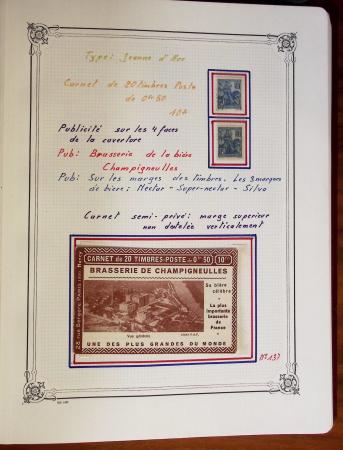 Type: Jeanne d'Arc
Carnet de 20 timbres Poste
de 0fr 50
Publicité sur les 4 faces
de la couverture
Pub: Brasserie de la bière
Champigneulles
Pub: Sur les marges des timbres. Les 3 marques
de bière: Nectar - Super-nectar - Silvo
Carnet semi-privé: marge superieur
non dentelée verticalement
CARNET DE 20 TIMBRES-POSTE DE 0F 50 10F
BRASSERIE DE CHAMPIGNEULLES
Sa bière
célèbre
La plus
importante
brasserie
de
France
Vue générale
UNE DES PLUS GRANDES DU MONDE
28, rue Bergère, Paris
N°137